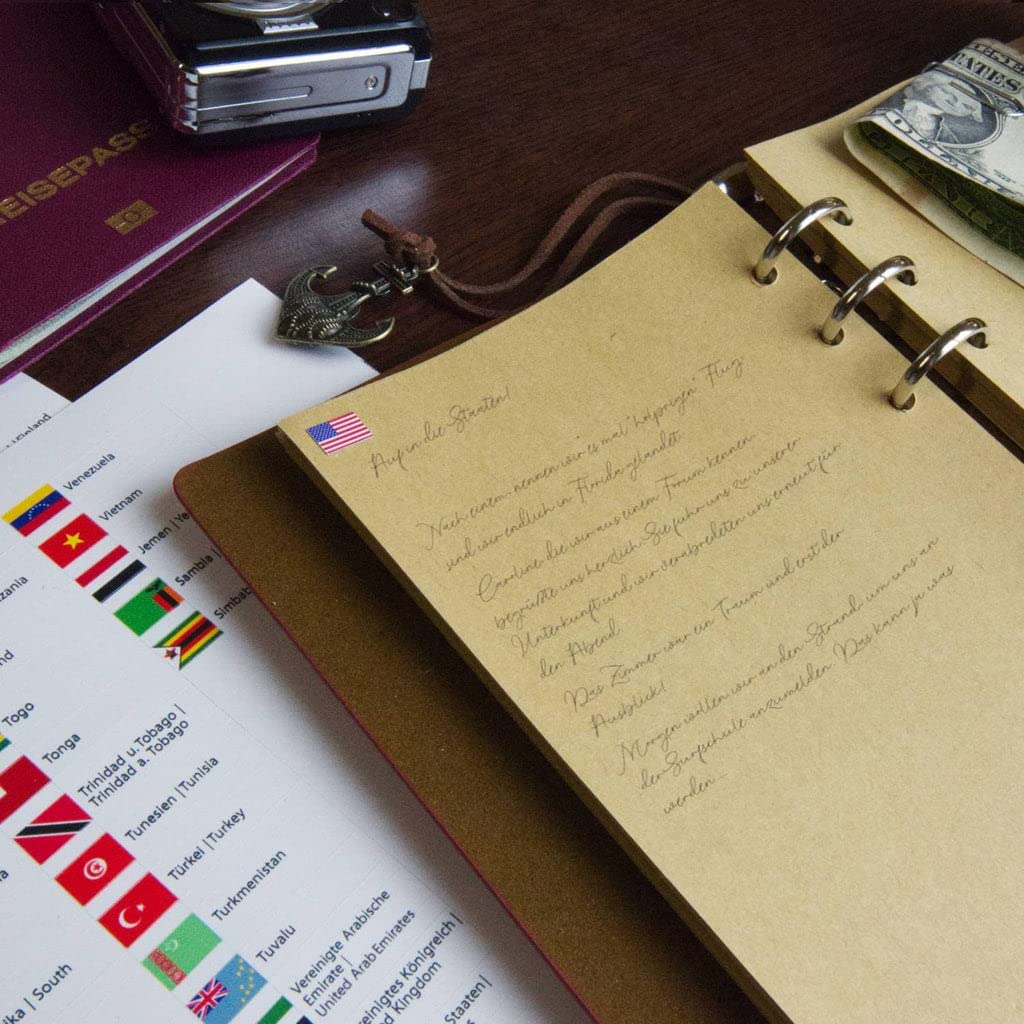 REISEPASS
Auf in die Staaten!
Nach einem nennen wir es mal "holprigen" Flug
sind wir endlich in Florida gelandet.
Caroline die wir aus einem Forum kennen
begrüßte uns herzlich. Sie fuhr uns zu unserer
Unterkunft und wir verabredeten uns erneut für
den Abend.
Das Zimmer war ein Traum und erst der
Ausblick!
Morgen wollen wir an den Strand, um uns an
der Surfschule anzumelden. Das kann ja was
werden...
Venezuela
Vietnam
Jemen | Ye
Sambia |
Simbab
Togo
Tonga
Trinidad u. Tobago |
Trinidad a. Tobago
Tunesien | Tunisia
Türkei | Turkey
Turkmenistan
Tuvalu
Vereinigte Arabische
Emirate |
United Arab Emirates
reinigtes Königreich |
d Kingdom
Staaten |
ka | South